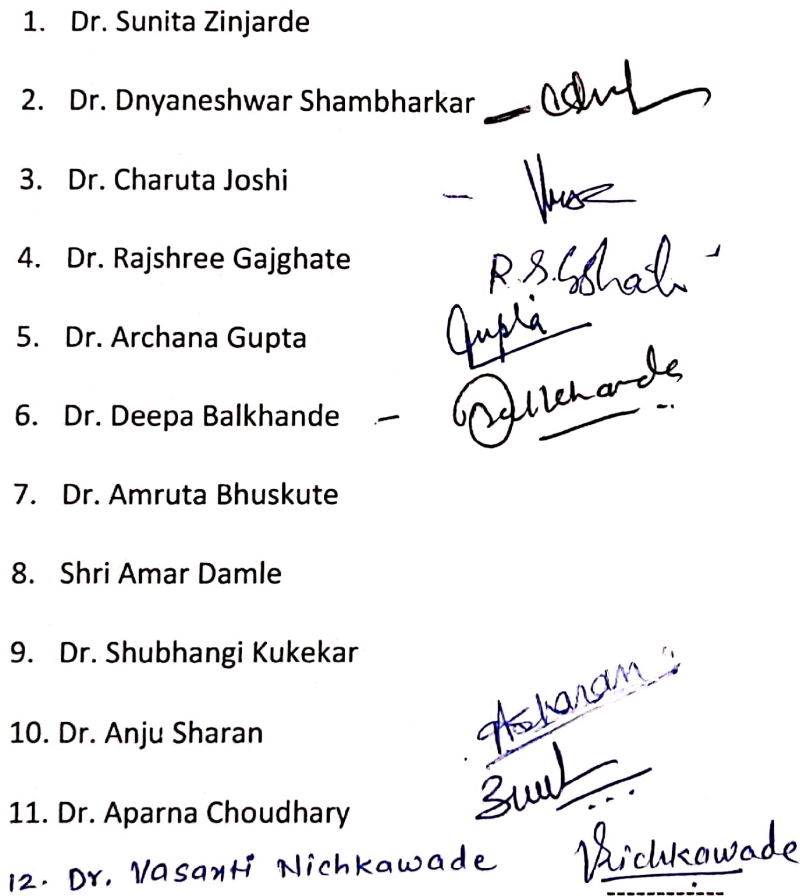 1. Dr. Sunita Zinjarde
2. Dr. Dnyaneshwar Shambharkar –
3. Dr. Charuta Joshi –
4. Dr. Rajshree Gajghate
5. Dr. Archana Gupta Gupta
6. Dr. Deepa Balkhande – Balkhande
7. Dr. Amruta Bhuskute
8. Shri Amar Damle
9. Dr. Shubhangi Kukekar
10. Dr. Anju Sharan Asharan
11. Dr. Aparna Choudhary
12. Dr. Vasanti Nichkawade VNichkawade